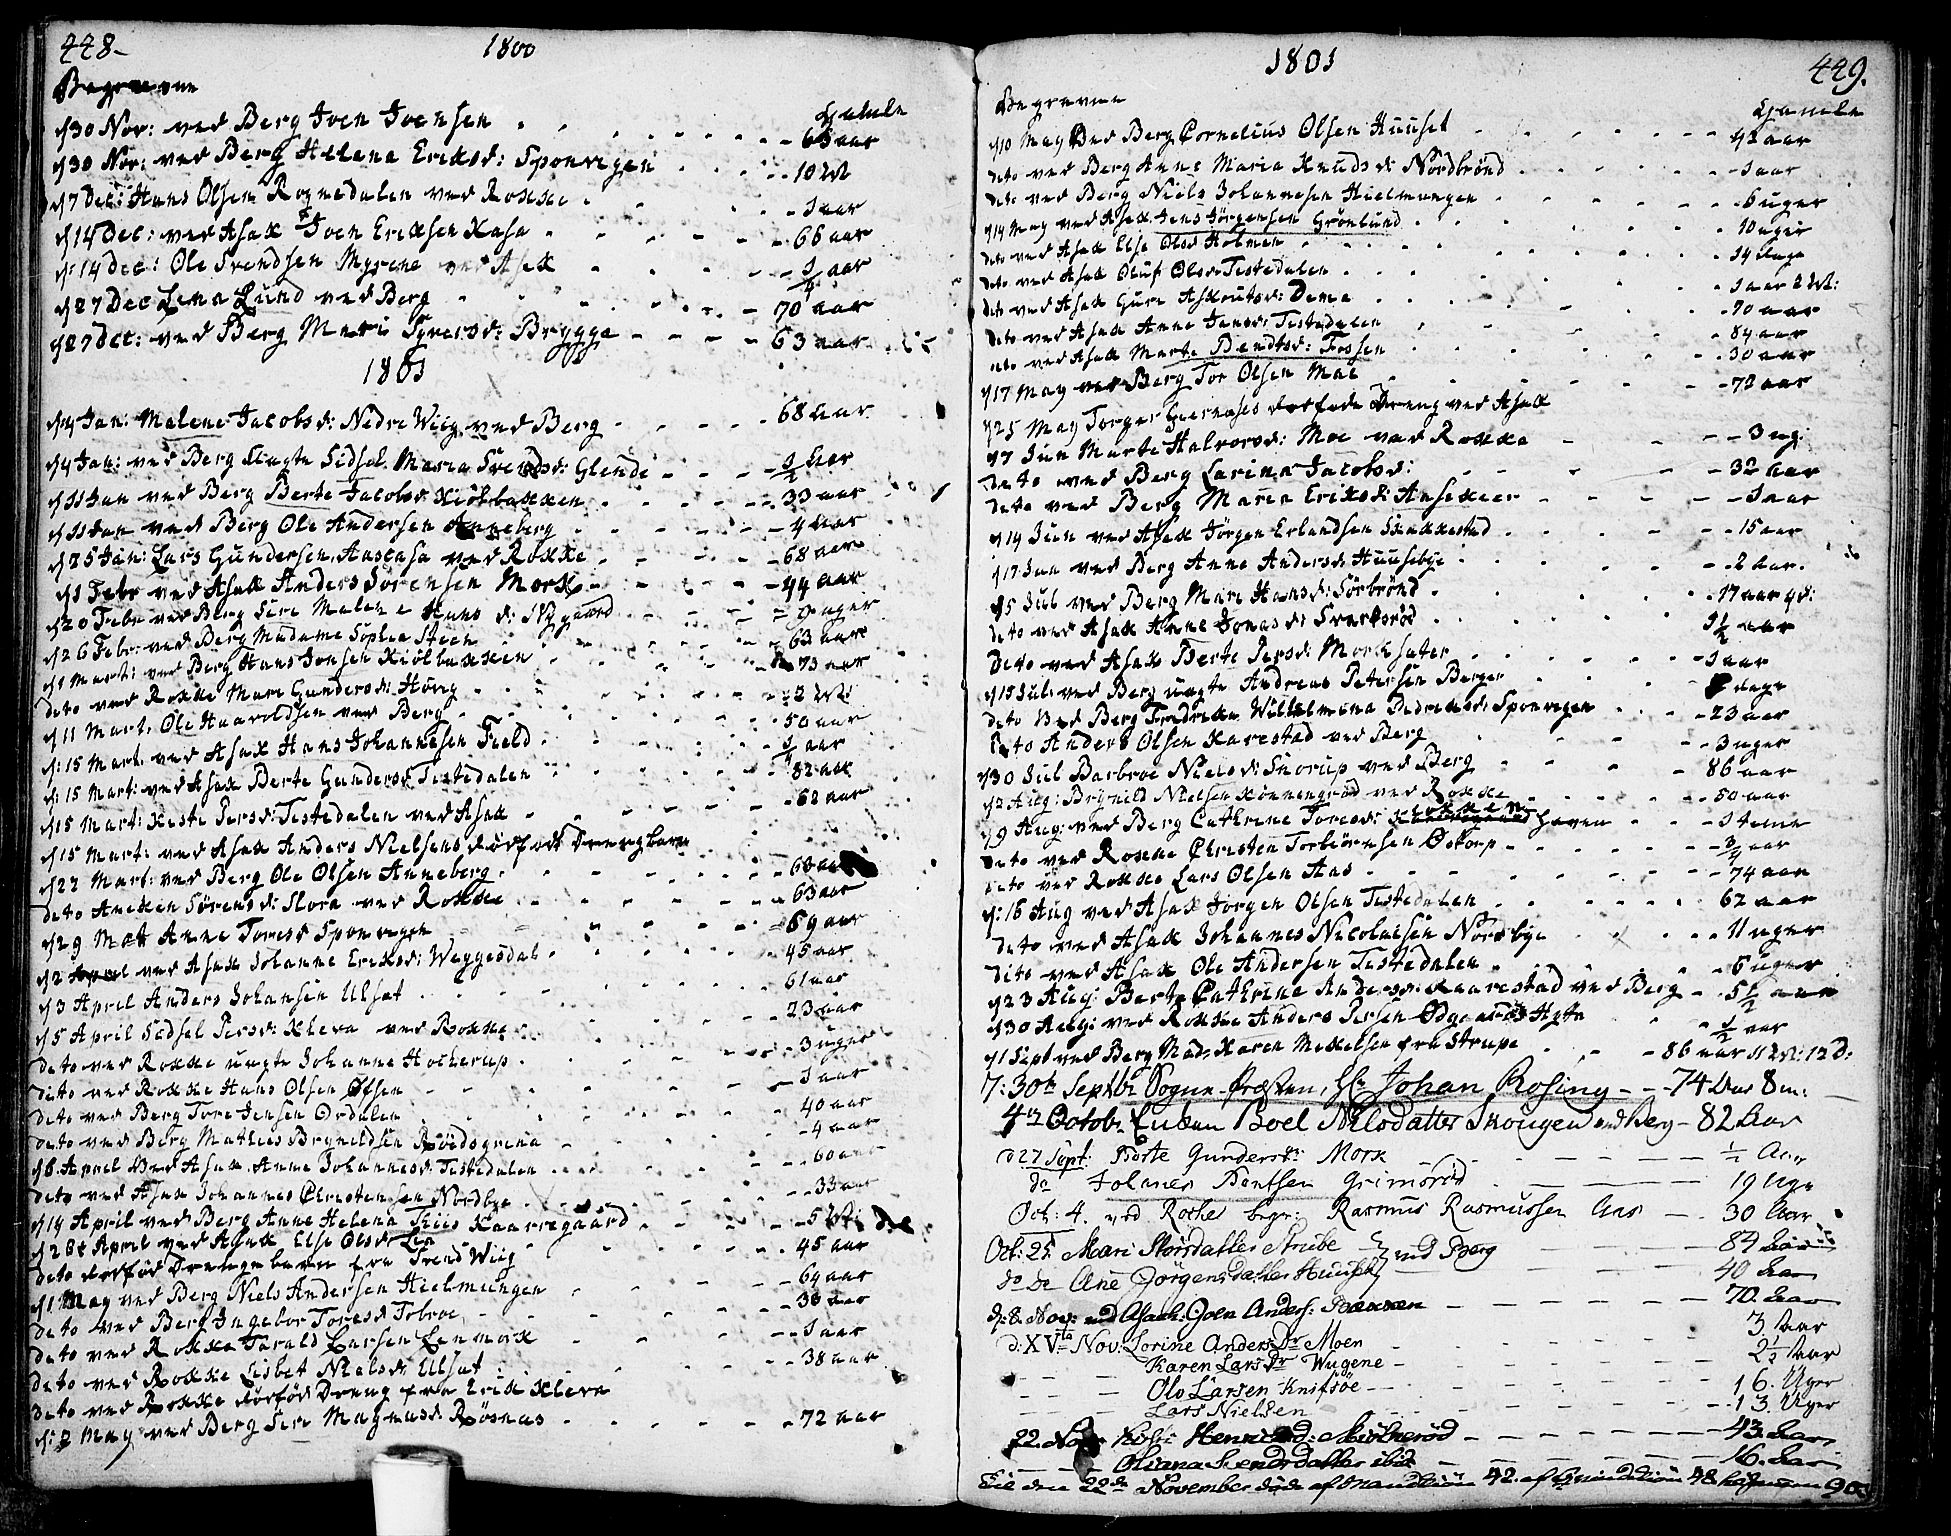 448-
1800
Begravne
Gamle
d 30 Nov: ved Berg Joen Joensen 65 aar
d 30 Nov: ved Berg Helene Eriksd: Sponvigen 10 M
d 7 Dec: Hans Olsen Rognedalen ved Rokke 1 aar
d 14 Dec: ved Asak Joen Eriksen Kasa 66 aar
d: 14 Dec: Ole Svendsen Myrene ved Asak 1/4 aar
d 27 Dec Lena Lund ved Berg 70 aar
d 27 Dec: ved Berg Mari Syversd: Brygge 63 aar
1801
d 4 Jan: Malene Jacobsd: Nedre Wiig ved Berg 68 aar
d 4 Jan: ved Berg ungte Sidsel Maria Svendsd: Glende 1/2 aar
d 11 Jan ved Berg Berte Jacobsd: Kiølbakken 33 aar
d 11 Jan ved Berg Ole Andersen Anneberg 4 aar
d 25 Jan: Lars Gundersen Aastasa ved Rokke 68 aar
d 1 Febr ved Asak Anders Sørensen Mork 44 aar
d 20 Febr ved Berg Siri Malene Hans d: Nygaard 9 uger
d 26 Febr: ved Berg Madame Sophia Steen 63 aar
d 1 Mart: ved Berg Hans Jonsen Kiølbakken 73 aar
deto ved Rokke Mari Gundersd: Høvig 2 M:
d 11 Mart. Ole Haaroldsen ved Berg 50 aar
d: 15 Mart. ved Asak Hans Johannesen Field 1/4 aar
d: 15 Mart: ved Asak Berte Gundersd: Tistedalen 82 aar
d 15 Mart: Kisti Persd: Tistedalen ved Asak 62 aar
d 15 Mart: ved Asak Anders Nielsens dødfødt Drengbarn
d 22 Mart: ved Berg Ole Olsen Anneberg 60 aar
deto Aneken Sørensd: Slora ved Rokke 63 aar
d 29 Mart Anne Toresd Sponvigen 69 aar
d 2 April ved Asak Johanne Eriksd: Weggesdal 45 aar
d 3 April Anders Johansen Ulsæt 61 aar
d 5 April Sidsel Persd: Kleva ved Rokke 23 aar
deto ved Rokke ungte Johanne Hocherup 3 uger
deto ved Rokke Hans Olsen Østsen 1 aar
deto ved Berg Tore Jensen Ordalen 40 aar
deto ved Berg Mathias Brynildsen Rødsgrena 4 aar
d 6 April ved Asak Anne Johannesd: Tistedalen 60 aar
deto ved Asak Johannes Christensen Nordbye 33 aar
d 14 April ved Berg Anne Helena Thiis Kaarregaard 5 M:
d 26 April ved Asak Else Olsd: Lie 45 aar
deto dødfød Drengebarn fra Svend Wiig
d 1 May ved Berg Niels Andersen Hielmungen 64 aar
deto ved Berg Ingebor Toresd Tobroe 36 aar
deto ved Rokke Tarald Larsen Lenmark 1 aar
deto ved Rokke Lisbet Nielsd: Ulsæt 38 aar
deto ved Rokke dødfød Dreng fra Erik Kleva
d: 2 May ved Berg Siri Magnusd: Røsnæs 72 aar
1801
449.
Begravne
Gamle
d 10 May ved Berg Cornelius Olsen Huuset 42 aar
deto ved Berg Anne Maria Knudsd: Nordbrønd 1 aar
deto ved Berg Niels Johannesen Hielmungen 6 uger
d 14 May ved Asak Jens Jørgensen Grønlund 10 uger
deto ved Asak Else Olsd Holmen 14 dage
deto ved Asak Oluf Olsen Tistedalen 1 aar 2 M:
deto ved Asak Guri Askoutsd: Dema 70 aar
deto ved Asak Anne Jensd: Tistedalen 84 aar
deto ved Asak Marte Bendtsd: Fossen 30 aar
d 17 May ved Berg Tor Olsen Mae 72 aar
d 25 May Torger Giernæses dødfødte Dreng ved Asak
d 7 Jun Marte Halvorsd: Moe ved Rokke 3 ug:
deto ved Berg Larina Jacobsd: 32 aar
deto ved Berg Maren Eriksd: Ansekeer 1 aar
d 14 Jun ved Asak Jørgen Erlandsen Skakkestad 15 aar
d 17 Jun ved Berg Anne Andersd: Huusebye 2 aar.
d 5 Jul ved Berg Mari Hansd: Sørbrønd 17 aar 9 d:
deto ved Asak Anne Jonasd: Svartsrød 1 1/2 aar
deto ved Asak Berte Persd: Morksater 1 aar
d 15 Jul: ved Berg ungte Andreas Petersen Berger dage
deto ved Berg Fredrika Willhelmina Didriksd: Sponvigen 23 aar
deto Anders Olsen Karrestad ved Berg 3 uger
d 30 Jul Barbroe Nielsd: Skorup ved Berg 86 aar
d 2 Aug: Brynild Nielsen Kønnengrød ved Rokke 50 aar
d 9 Aug: ved Berg Cathrine Toresd: Klokken haven 1 time
deto ved Rokke Christen Torbiørnsen Østorp 3/4 aar
deto ved Rokke Lars Olsen Aas 74 aar
d: 16 Aug ved Asak Jørgen Olsen Tistedalen 62 aar
deto ved Asak Johannes Nicolaisen Nordbye 11 uger
deto ved Asak Ole Andersen Tistedalen 6 uger
d 23 Aug: Berte Cathrine Andersd: Kaarrestad ved Berg 5 1/2 aar
d 30 Aug: ved Rokke Anders Persen Ødgaards Hytte 1/2 aar
d 1 Sept ved Berg Mad: Karen Mikkelsen fra Strupe 86 aar 11 M: 12 D:
7: 30te Septbr Sogne-Præsten, Hr Johan Rosing 74 Aar 8 m:
4de Octob: Enken Boel Nilsdatter Skougen ved Berg - 82 Aar
d 27 Sept: Birte Gundersd: Mork 1/2 Aar
do Johanes Bentsen Grimsrød 19 Uge
Oct: 4. ved Rocke begr: Rasmus Rasmussen Aas 30 Aar
Oct: 25. Mari Morsdatter Strube 84 Aar
do do Ane Jørgensdatter Huuset ved Berg 40 Aar
d: 8. Nov: ved Asach: Joen Anders: Backen 70. Aar
d: XVta Nov: Lorine Anders Dr Moen 3. Aar
Karen Lars Dr Wugene 2 1/2 Aar
Ole Larsen Knifsøe 16. Uger
Lars Nielsen 13. Uger
22. Nov: Kisti Henricsd: Skiølnerød 43. Aar
Oliana Svendsdatter ibid 16. Aar
Til den 22de November døde af Mandkiøn 42. af Qvindekiøn 48. tilsammen 90.